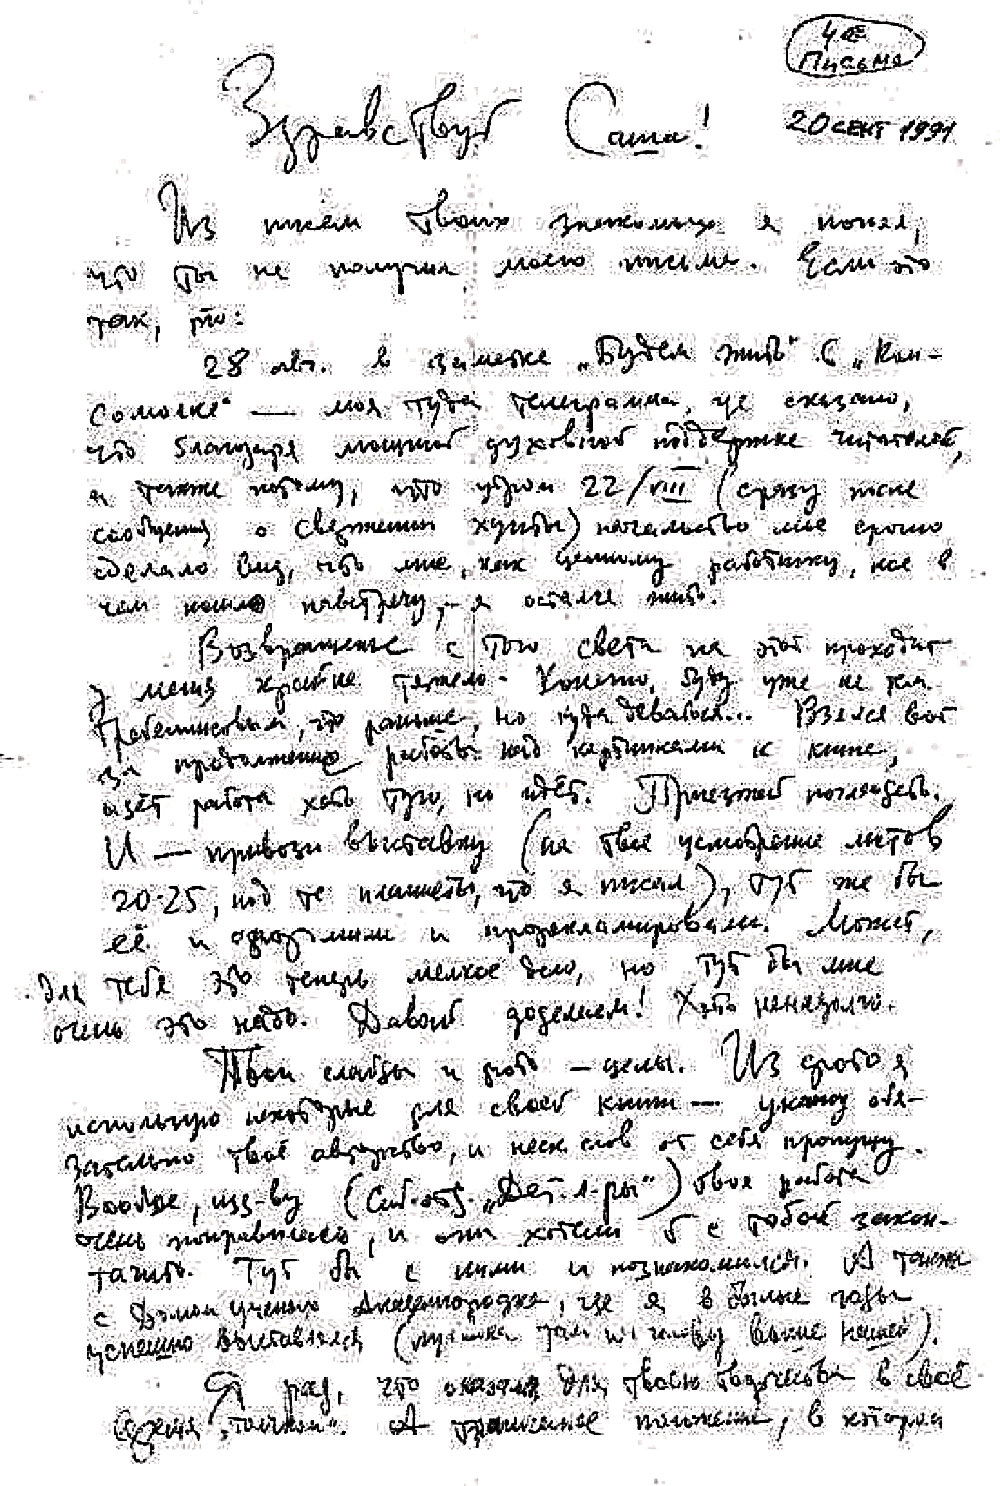 4ое
Письмо
20 сент 1991
Здравствуй Саша!
Из писем твоих знакомых я понял,
что ты не получил моего письма. Если это
так, то:
28 авг. в заметке „Будем жить" в „Ком-
сомолке" — моя туда телеграмма, где сказано,
что благодаря мощной духовной поддержке читателей,
а также потому, что утром 22/VIII (сразу после
сообщения о свержении хунты) начальство мне срочно
сделало вид, что мне, как ценному работнику, кое в
чём пошло навстречу, — я остался жить.
Возвращение с того света на этот проходит
у меня крайне тяжело. Конечно, буду уже не так
, что раньше, но куда деваться... Взялся вот
за продолжение работы над картинками к книге,
идёт работа хоть туго, но идёт. Приезжай поглядеть.
И — привози выставку (на твоё усмотрение листов
20-25, под те планшеты, что я писал), тут же бы
её и и прорекламировали. Может,
для тебя это теперь мелкое дело, но тут бы мне
очень это надо. Давай доделаем! Хоть ненадолго.
Твои слайды и фото — целы. Из фото я
использую некоторые для своей книги — укажу обя-
зательно твоё авторство, и неск. слов от себя пропущу.
Вообще, изд-ву (Сиб. отд. „Дет. л-ры") твоя работа
очень понравилась, и они хотели б с тобой закон-
тачить. Тут бы с ними и познакомился. А также
с Домом учёных Академгородка, где я в былые годы
успешно выставлялся (публика там на голову выше нашей).
Я рад, что оказался для твоего творчества в своё
время „толчком". А положение, в котором